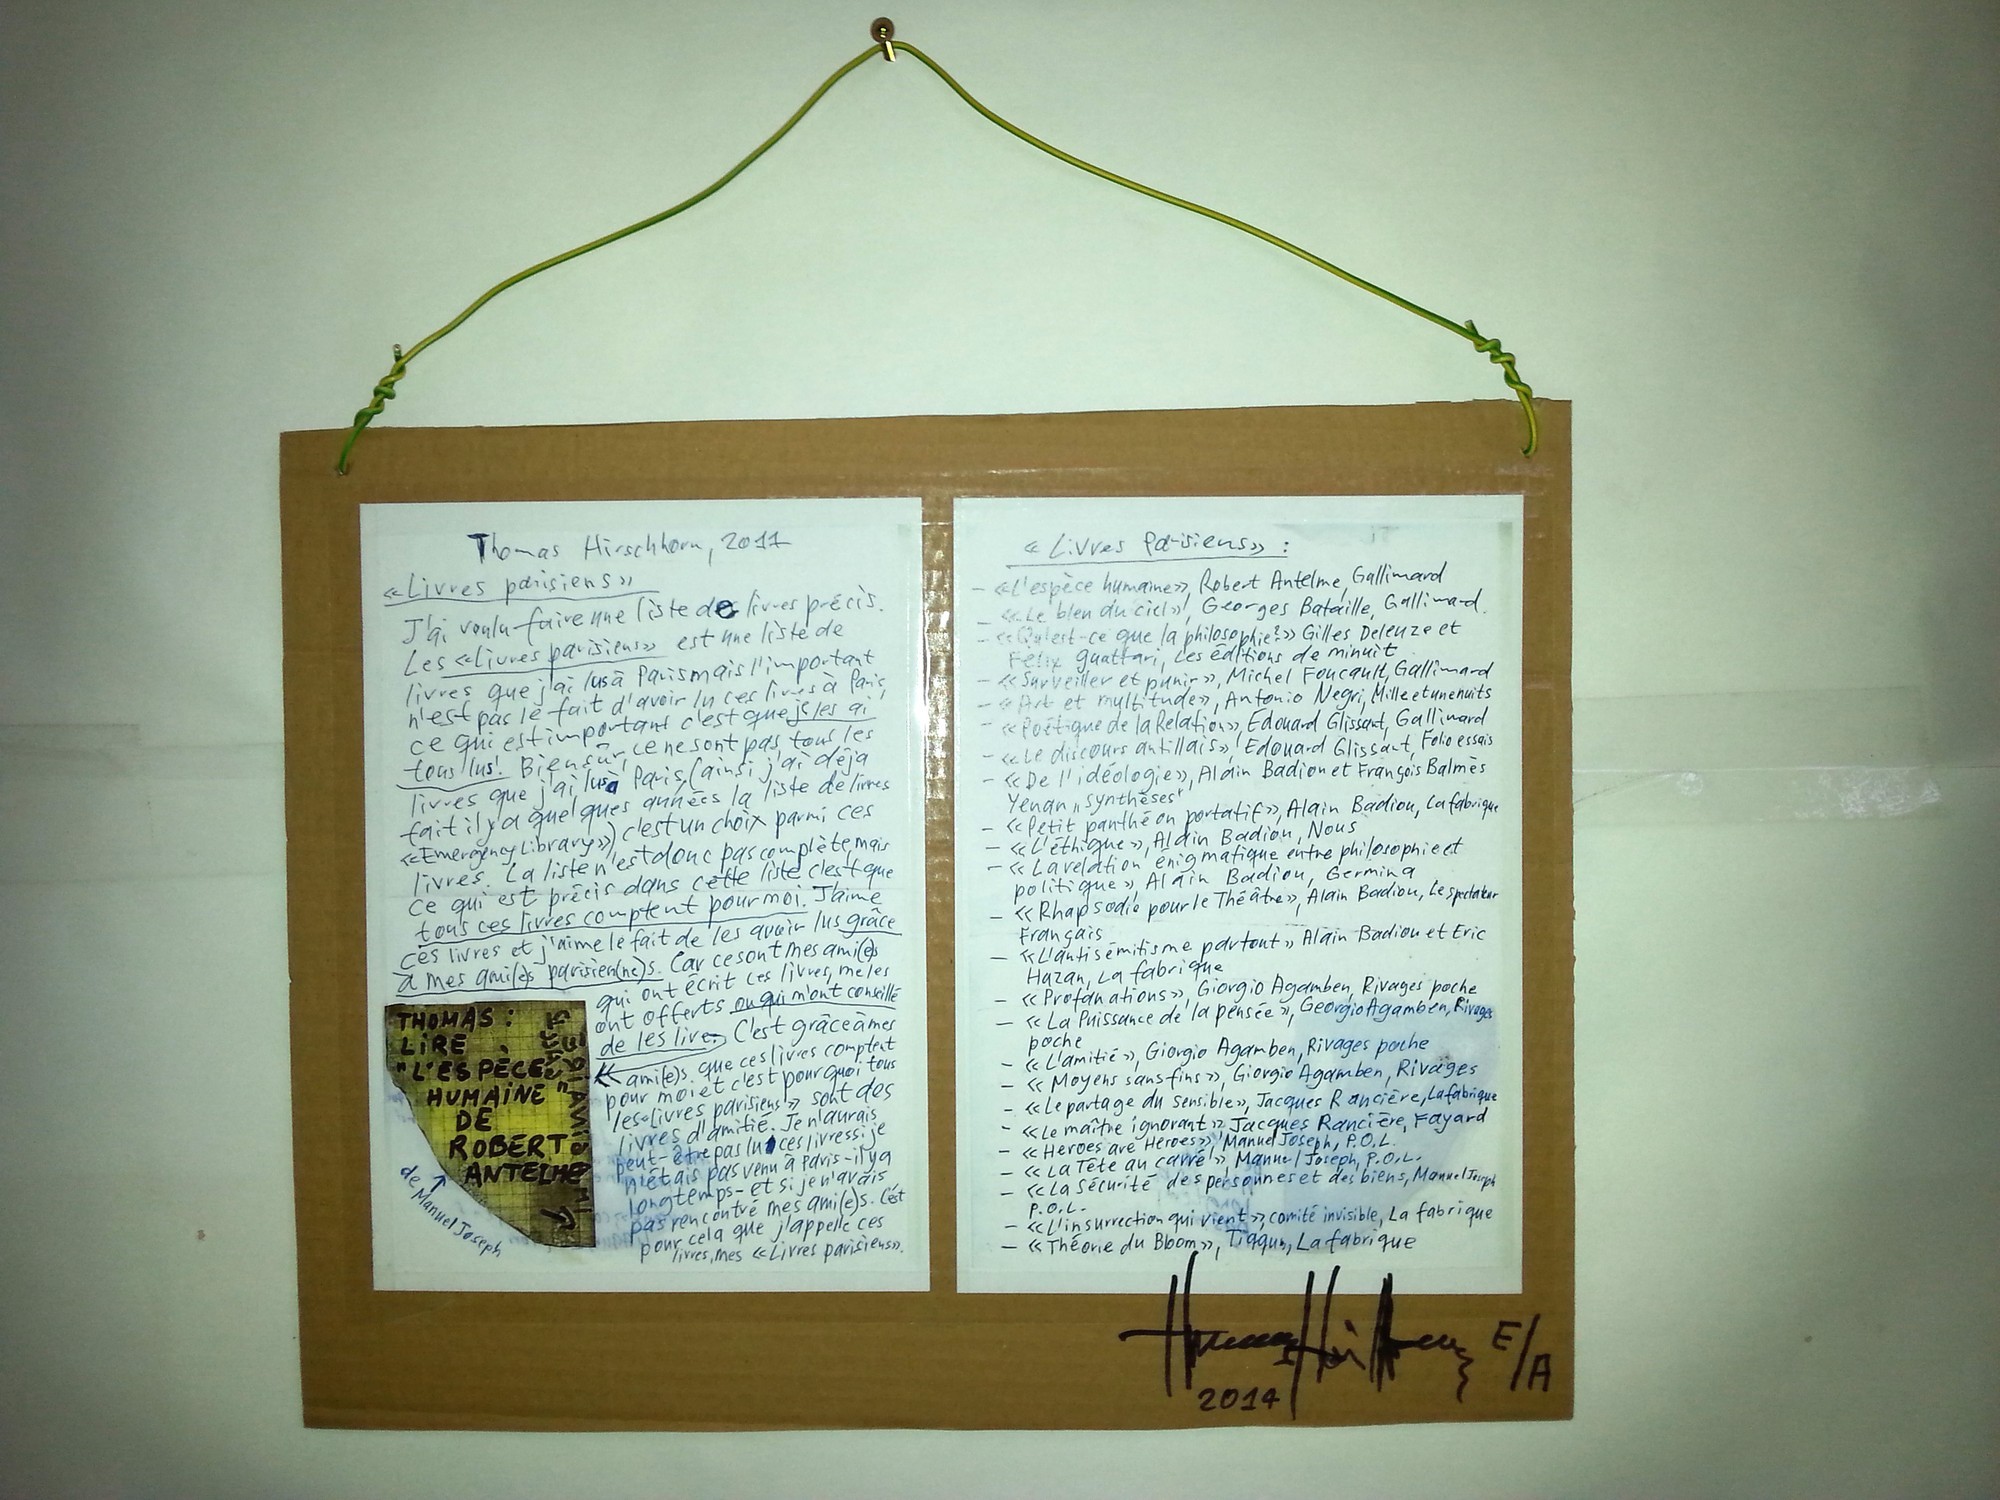 Thomas Hirschhorn, 2011
«Livres parisiens»
J'ai voulu faire une liste de livres précis.
Les «Livres parisiens» est une liste de
livres que j'ai lus à Paris mais l'important
n'est pas le fait d'avoir lu ces livres à Paris,
ce qui est important c'est que je les ai
tous lus! Bien sûr, ce ne sont pas tous les
livres que j'ai lus à Paris, (ainsi j'ai déja
fait il y a quelques années la liste de livres
«Emergency Library»), c'est un choix parmi ces
livres. La liste n'est donc pas complète, mais
ce qui est précis dans cette liste c'est que
tous ces livres comptent pour moi. J'aime
ces livres et j'aime le fait de les avoir lus grâce
à mes ami(e)s parisien(ne)s. Car ce sont mes ami(e)s
qui ont écrit ces livres, me les
ont offerts ou qui m'ont conseillé
de les lire. C'est grâce à mes
ami(e)s que ces livres comptent
pour moi et c'est pourquoi tous
les «livres parisiens» sont des
livres d'amitié. Je n'aurais
peut-être pas lu ces livres si je
n'étais pas venu à Paris - il y a
longtemps - et si je n'avais
pas rencontré mes ami(e)s. C'est
pour cela que j'appelle ces
livres, mes «Livres parisiens».
THOMAS:
LIRE
"L'ESPÈCE
HUMAINE"
DE
ROBERT
ANTELME
de Manuel Joseph
«Livres Parisiens» :
- «L'espèce humaine», Robert Antelme, Gallimard
- «Le bleu du ciel», Georges Bataille, Gallimard.
- «Qu'est-ce que la philosophie?» Gilles Deleuze et
Félix Guattari, Les éditions de minuit
- «Surveiller et punir», Michel Foucault, Gallimard
- «Art et multitude», Antonio Negri, Mille et une nuits
- «Poétique de la Relation», Edouard Glissant, Gallimard
- «Le discours antillais», Edouard Glissant, Folio essais
- «De l'idéologie», Alain Badiou et François Balmès
Yenan "synthèses"
- «Petit panthéon portatif», Alain Badiou, La fabrique
- «L'éthique», Alain Badiou, Nous
- «La relation énigmatique entre philosophie et
politique», Alain Badiou, Germina
- «Rhapsodie pour le Théâtre», Alain Badiou, Le spectateur
Français
- «L'antisémitisme partout» Alain Badiou et Eric
Hazan, La fabrique
- «Profanations», Giorgio Agamben, Rivages poche
- «La Puissance de la pensée», Georgio Agamben, Rivages
poche
- «L'amitié», Giorgio Agamben, Rivages poche
- «Moyens sans fins», Giorgio Agamben, Rivages
- «Le partage du sensible», Jacques Rancière, La fabrique
- «Le maître ignorant» Jacques Rancière, Fayard
- «Heroes are Heroes», Manuel Joseph, P.O.L.
- «La Tête au carré» Manuel Joseph, P.O.L.
- «La Sécurité des personnes et des biens, Manuel Joseph
P.O.L.
- «L'insurrection qui vient», comité invisible, La fabrique
- «Théorie du Bloom», Tiqqun, La fabrique
Thomas Hirschhorn E/A
2014